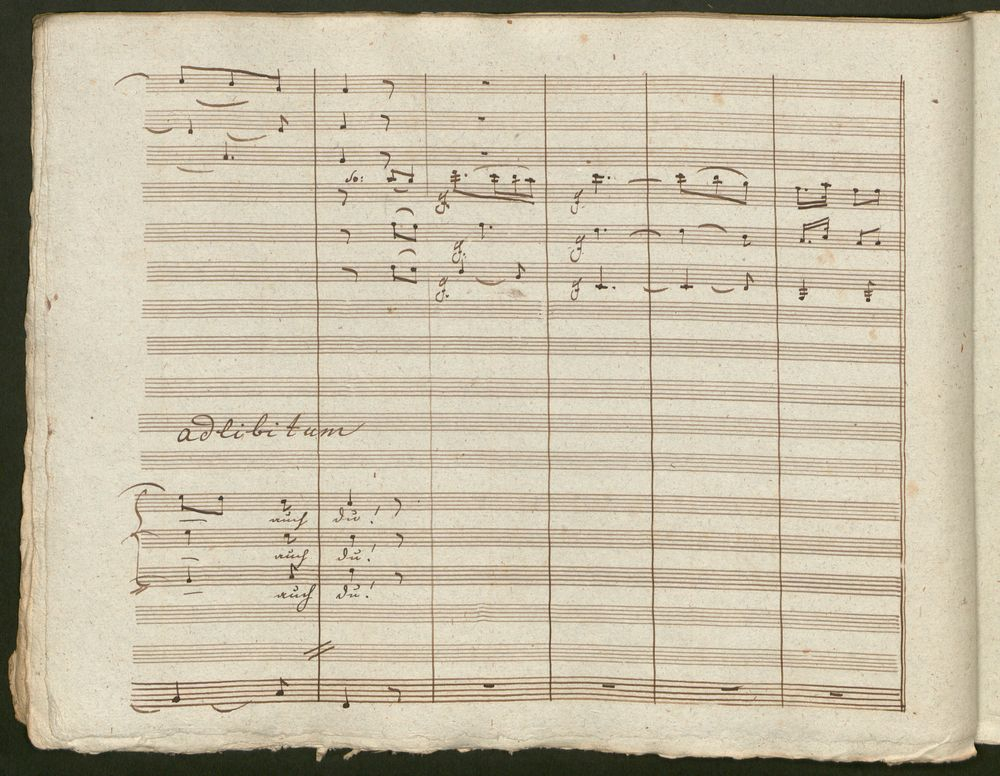 So:
adlibitum
auch du!
auch du!
auch du!